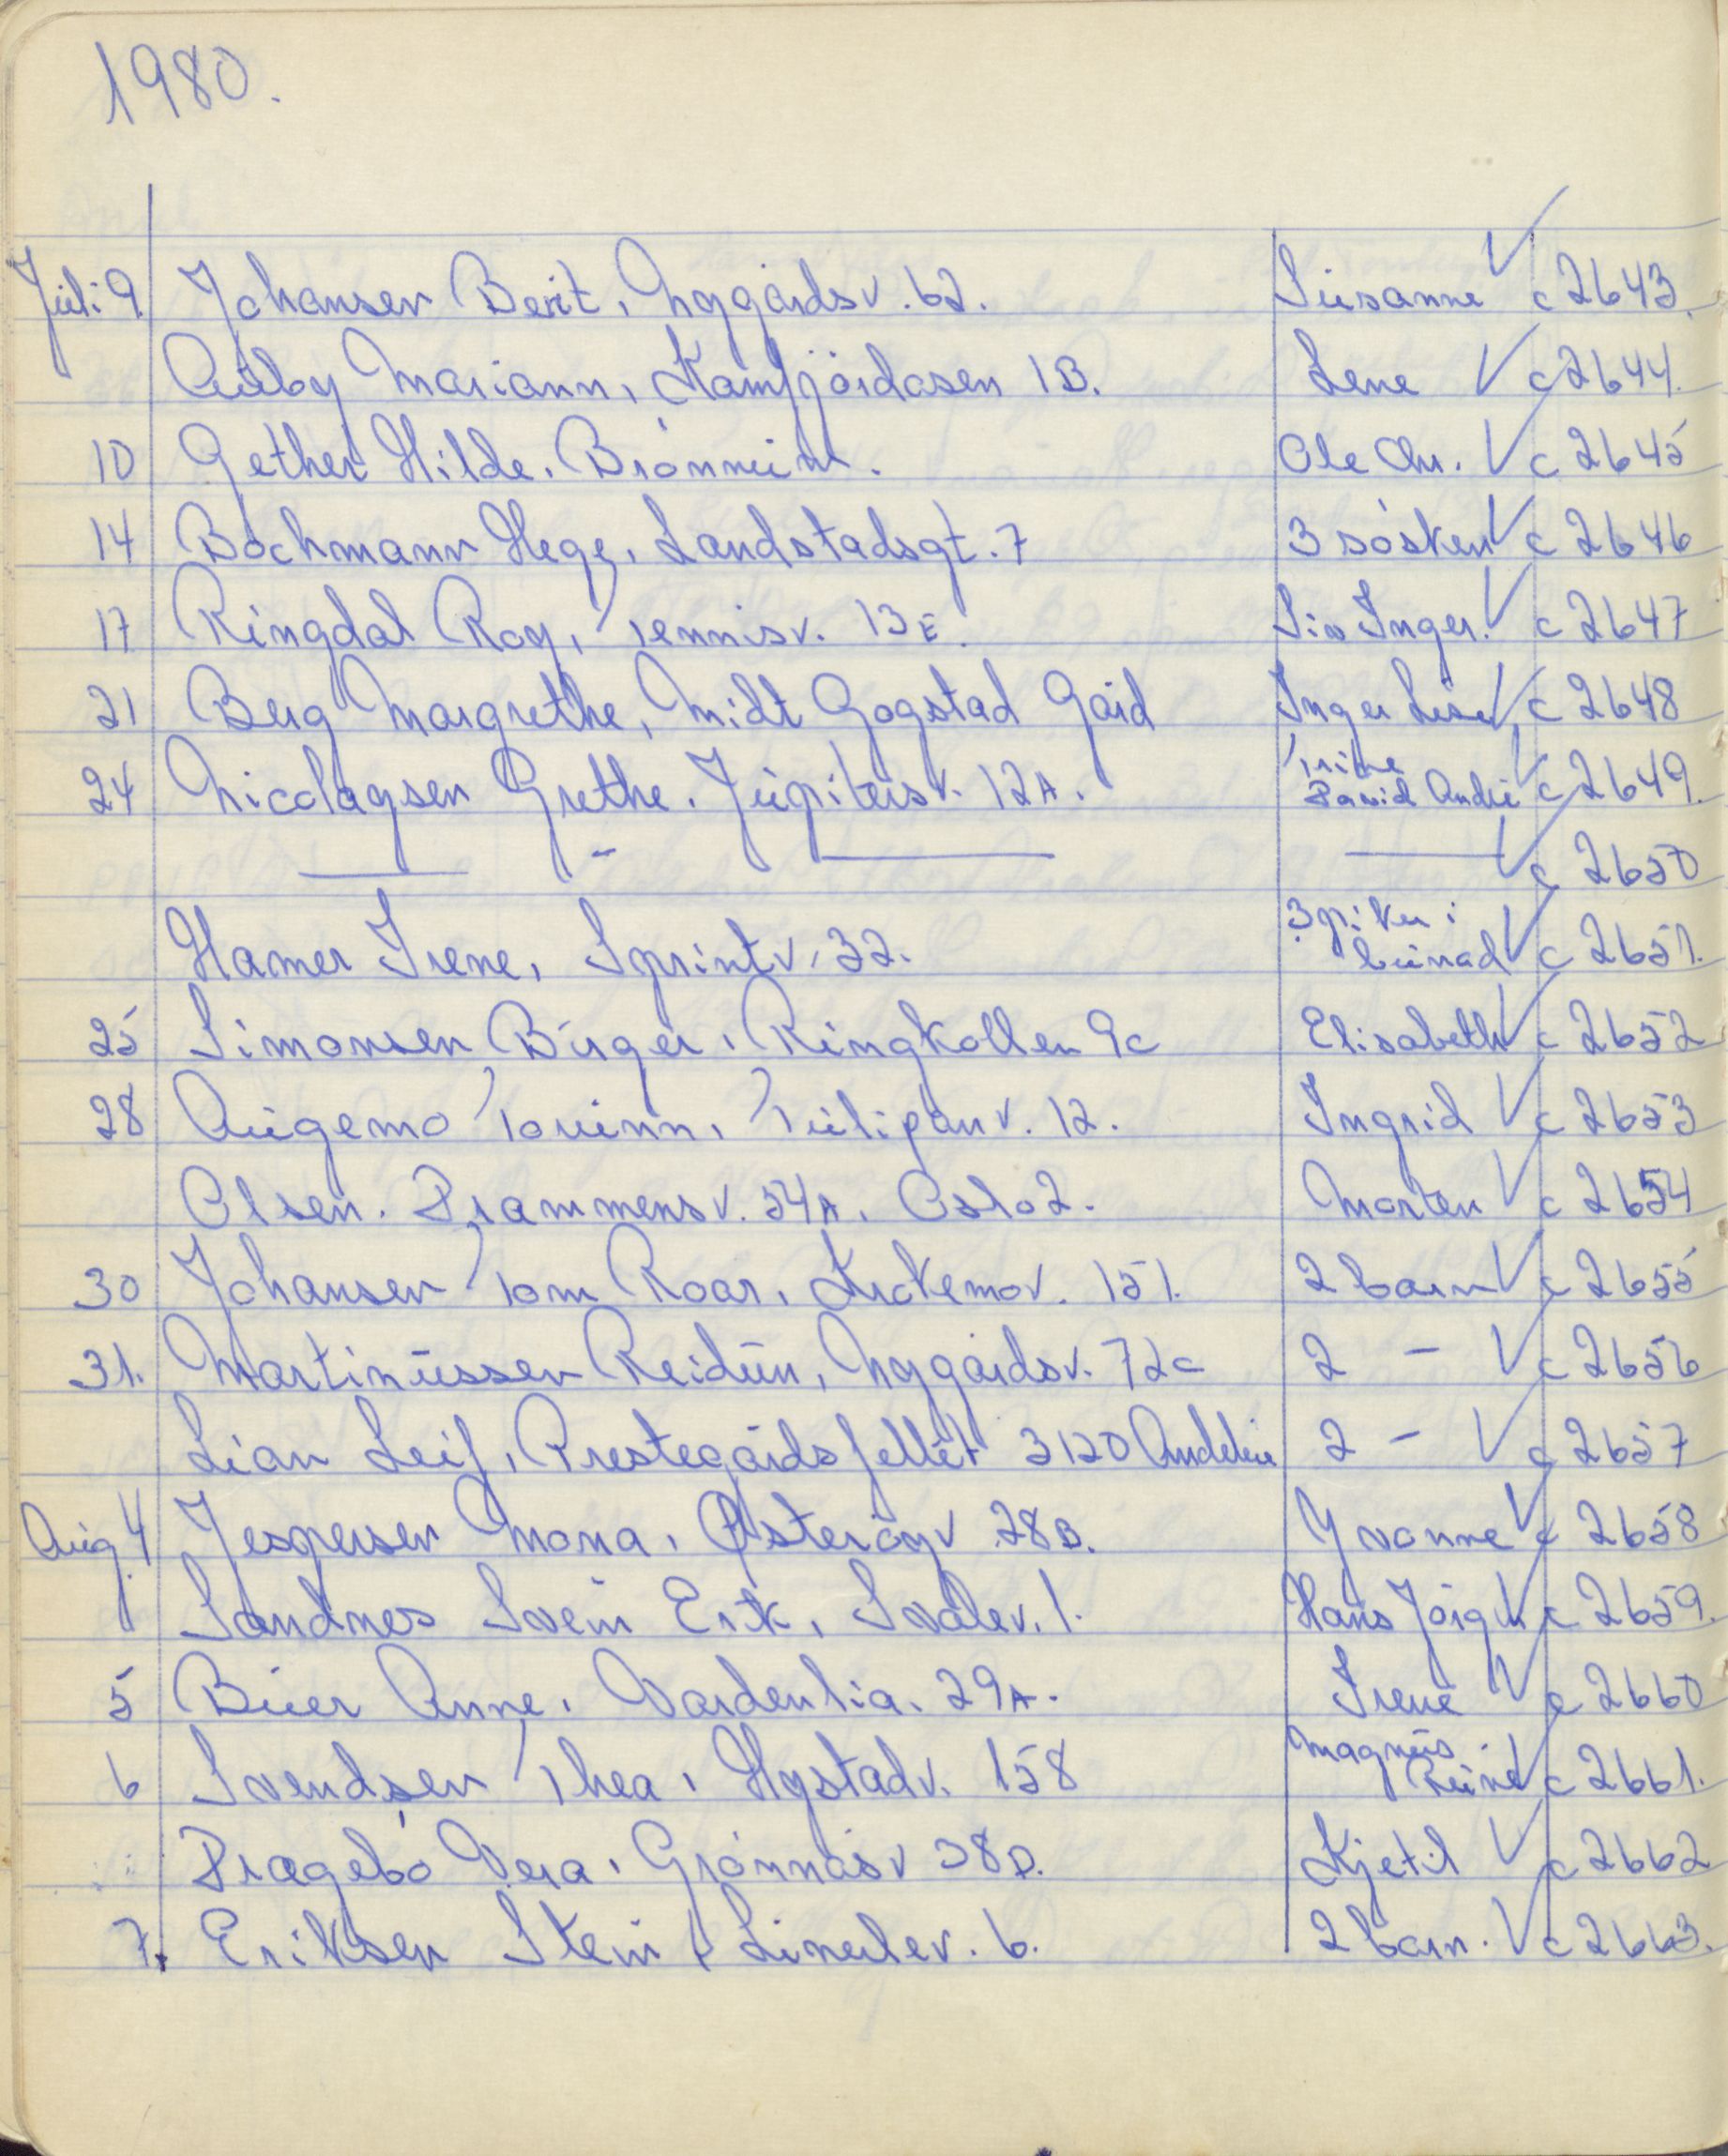 1980.
Juli 9. Johansen Berit, Nygårdsv. 62. Susanne √ c 2643.
Auby Mariann, Kamfjordåsen 1B. Lene √ c 2644.
10 Gether Hilde. Brönnum. Ole Chr. √ c 2645
14 Böchmann Hege, Landstadsgt. 7 3 søsken √ c 2646
17 Ringdal Roy, Tennisv. 13E. Siv Inger. √ c 2647
21 Berg Margrethe, Midt Gogstad Gård Inger Lise √ c 2648
24 Nicolaysen Grethe. Jupitersv. 12A. Trine David André √ c 2649.
— - — — √ c 2650
Hamer Irene, Sprintv. 32. 3 piker i bunad √ c 2651.
25 Simonsen Birger, Ringkollen 9c Elisabeth √ c 2652
28 Augemo Torunn, Tulipanv. 12. Ingrid √ c 2653
Olsen. Drammensv. 54A. Oslo 2. Morten √ c 2654
30 Johansen Tom Roar, Krokemov. 151. 2 barn √ c 2655
31. Martinussen Reidun, Nygårdsv. 72c 2 - √ c 2656
Lian Leif, Prestegårdsfeltet 3120 Andebu 2 - √ c 2657
Aug. 4 Jespersen Mona, Østerøyv 28B. Yvonne √ c 2658
Sandnes Svein Erik, Svalev. 1. Hans Jørgen √ c 2659.
5 Buer Anne, Vardenlia. 29A. Irene √ c 2660
6 Svendsen Thea, Hystadv. 158 Magnus Rune √ c 2661.
Dragebø Vera, Grønnåsv 38D. Kjetil √ c 2662
7. Eriksen Stein, Linerlev. 6. 2 barn. √ c 2663.